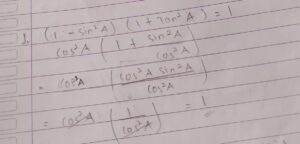 1. (1 - sin²A) (1 + Tan²A) = 1
cos²A (1 + sin²A / cos²A)
= cos²A (cos²A sin²A / cos²A)
= cos²A (1 / cos²A) = 1